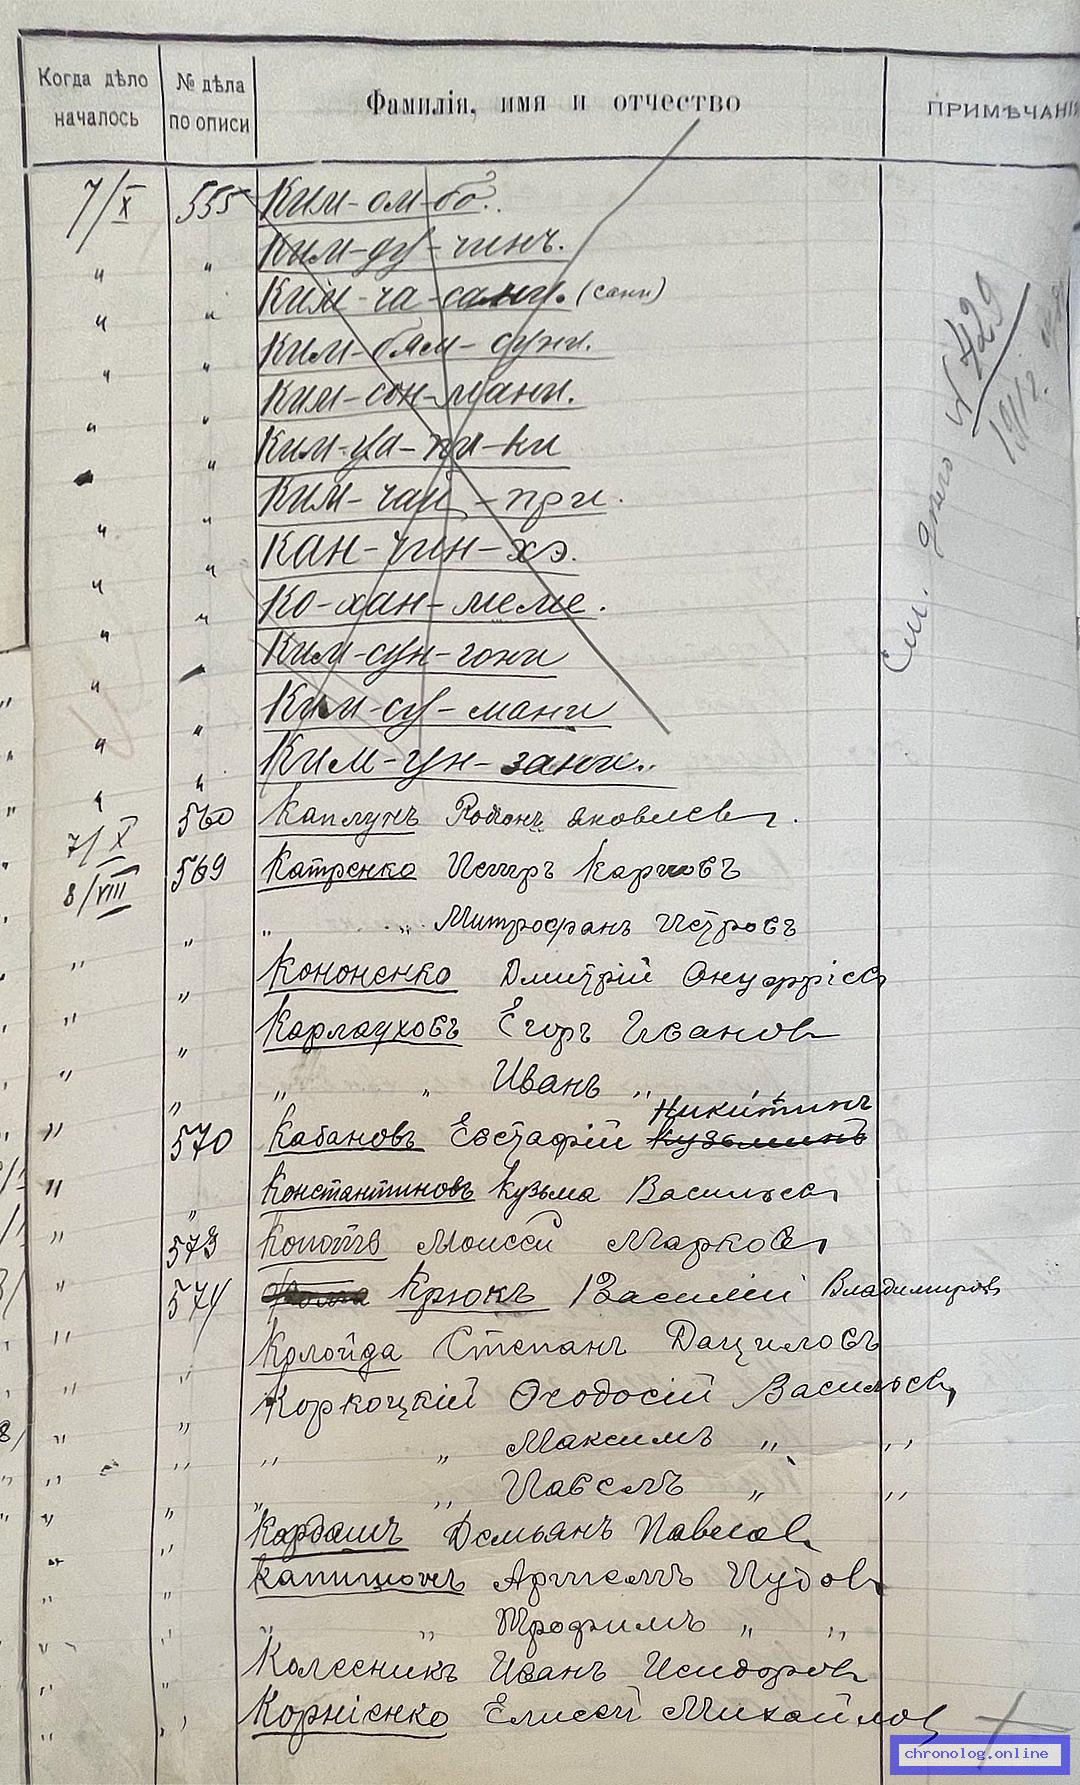 Когда дѣло началось № дѣла по описи Фамилія, имя и отчество ПРИМѢЧАНІЯ
7/X 555 Ким-ом-бо.
" " Ким-ду-чинъ.
" " Ким-ча-сани. (сани)
" " Ким-бям-суни.
" " Ким-сон-мани.
" " Ким-ца-пи-ни
" Ким-чай-при.
" " Кан-чин-хэ.
" " Ко-хан-меме.
" Ким-сун-гони
" " Ким-су-мани
" " Ким-ун-зани.
См. дѣло № 429 1911 г.
7/X 560 Каплунъ Яковлев.
8/VIII 569 Катренко Петръ Карповъ
" " " " Митрофанъ Петровъ
" " Кононенко Дмитрій Онуфріев
" " Карлауховъ Егоръ Иванов
" " " " Иванъ "
" 570 Кабановъ Евстафій Кузьминъ Никитинъ
" " Константиновъ Кузьма Васильев
" 573 Копотъ Моисей Марков
" 574 Крюкъ Василій Владимировъ
" " Степанъ Даниловъ
" " Коркоцкій Ѳеодосій Васильев,
" " " " Максимъ " "
" " " " Павелъ " "
" " Кардашъ Демьянъ Павлов
" " Артемъ Иудов
" " " " Трофимъ " "
" " Колесникъ Иванъ Исидоров
" " Корніенко Елисей Михайлов
chronolog.online